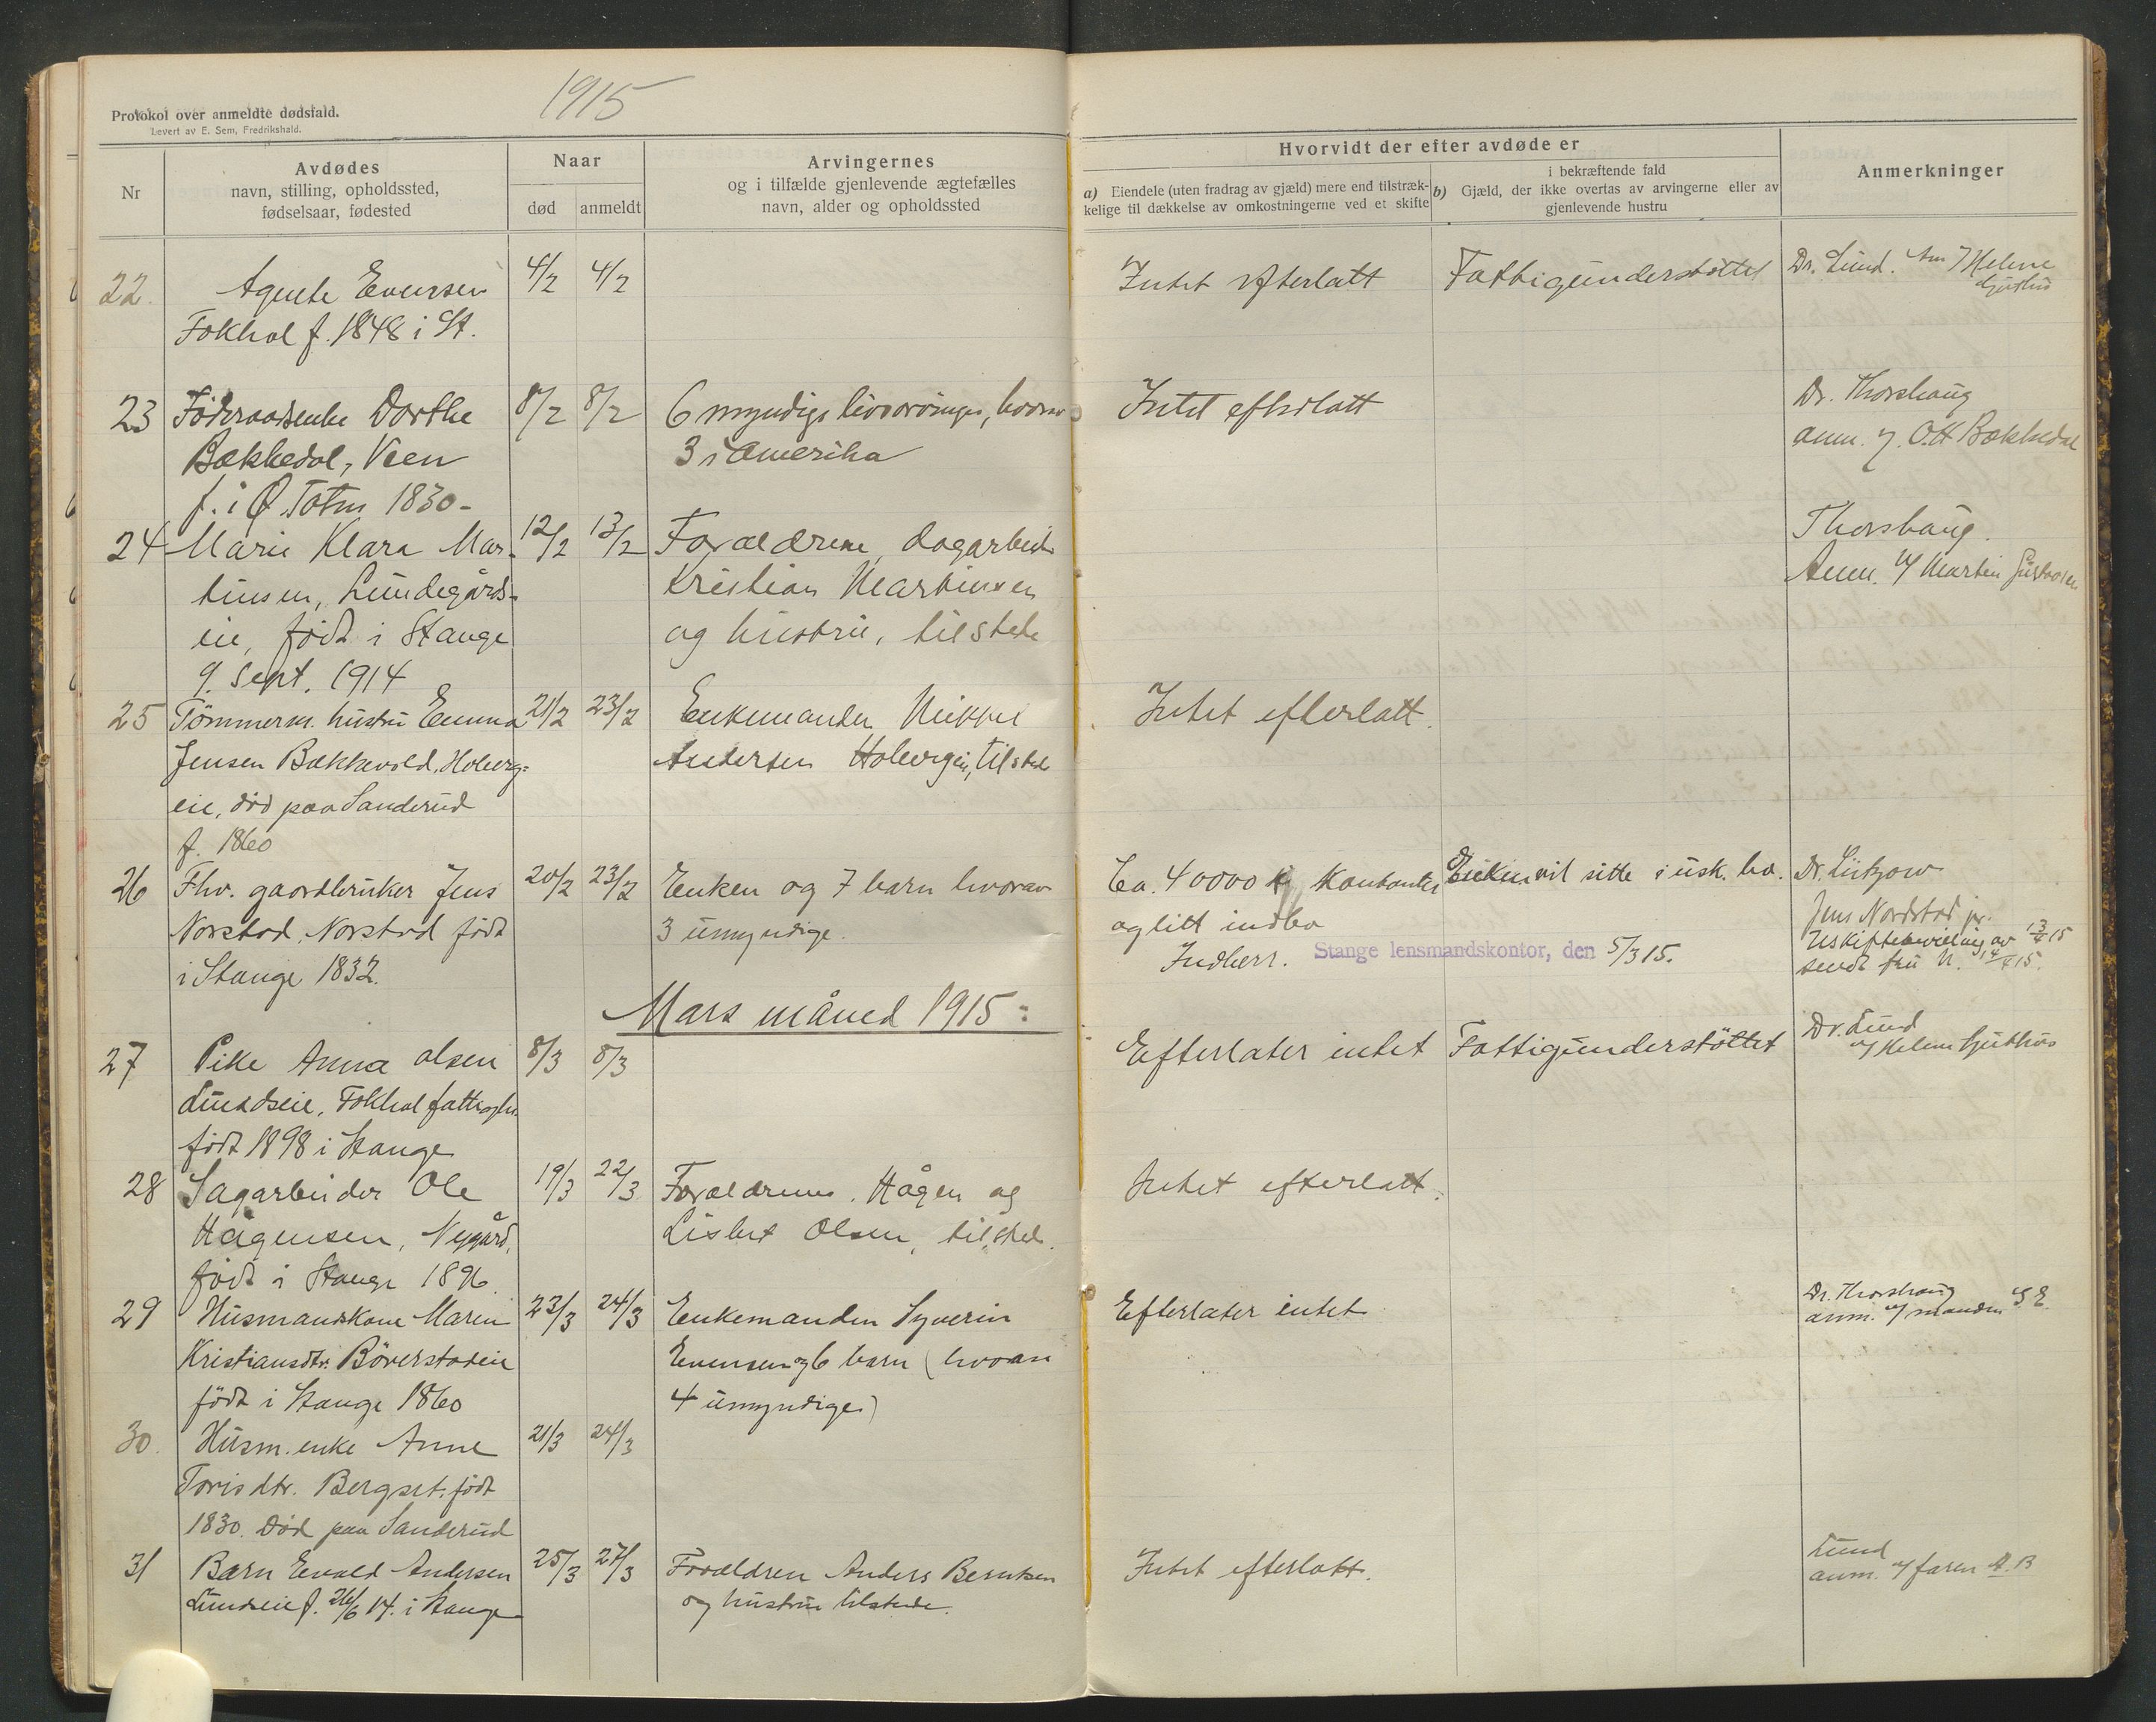 1915
Protokol over anmeldte dødsfald.
Levert av E. Sem, Fredrikshald.
Nr
Avdødes
navn, stilling, opholdssted,
fødselsaar, fødested
Naar
død
anmeldt
Arvingernes
og i tilfælde gjenlevende ægtefælles
navn, alder og opholdssted
Hvorvidt der efter avdøde er
a) Eiendele (uten fradrag av gjæld) mere end tilstræk-
kelige til dækkelse av omkostningerne ved et skifte
i bekræftende fald
b) Gjæld, der ikke overtas av arvingerne eller av
gjenlevende hustru
Anmerkninger
22. Agnethe Evensen 4/2 4/2 Intet efterlatt Fattigunderstøttet Dr. Lund. Helene
Fokhol f. 1848 i St.
23 Føderaadsenke Dorthe 8/2 8/2 6 myndige livsarvinger, hvorav Intet efterlatt Dr. Thorshaug
Bækkedal, Veen 3 i Amerika anm. v/ O.H Bækkedal
f. i Ø. Toten 1830-
24 Marie Klara Mar- 12/2 13/2 Forældrene, dagarbeider Thorshaug.
tinsen, Lundegårds- Kristian Martinsen Anm. v/ Martin Gustavsen
eie, født i Stange og hustru, tilstede
9. Sept. 1914
25 Tømmerm. hustru Emma 21/2 23/2 Enkemanden Mikkel Intet efterlatt.
Jensen Bækkevold, Holberg= Andersen tilstede
eie, død paa Sanderud
f. 1860
26 Fhv. gaardbruker Jens 20/2 23/2 Enken og 7 barn hvorav Ca. 40000 kr kontanter Enken vil sitte i usk. bo. Dr. Lützow
Norstad, Norstad født 3 umyndige. og litt indbo Jens Nordstad jr.
i Stange 1832. Indberr. Stange lensmandskontor, den 5/3 15. Uskiftebevilling av 13/4 15
sendt fru N. 14/4 15.
Mars måned 1915:
27 Pike Anna Olsen 8/3 8/3 Efterlater intet Fattigunderstøttet Dr. Lund
Lundseie, Fokhol fattigh. v/ Helene
født 1898 i Stange
28 Sagarbeider Ole 19/3 22/3 Forældrene, Hågen og Intet efterlatt.
Hågensen, Nygård, Lisbet Olsen, tilsted.
født i Stange 1896.
29 Husmandskone Maren 23/3 24/3 Enkemanden Syverin Efterlater intet Dr. Thorshaug
Kristiansdtr. Bøverstadeie Evensen og 6 barn (hvorav anm. v/ manden S E.
født i Stange 1860 4 umyndige)
30. Husm. enke Anne 21/3 24/3
Torisdtr. Bergset. født
1830. Død paa Sanderud
31 Barn Evald Andersen 25/3 27/3 Forældren Anders Berntsen Intet efterlatt. Lund
Lundseie f. 26/6 14. i Stange og hustru tilstede. anm. v/ faren A. B